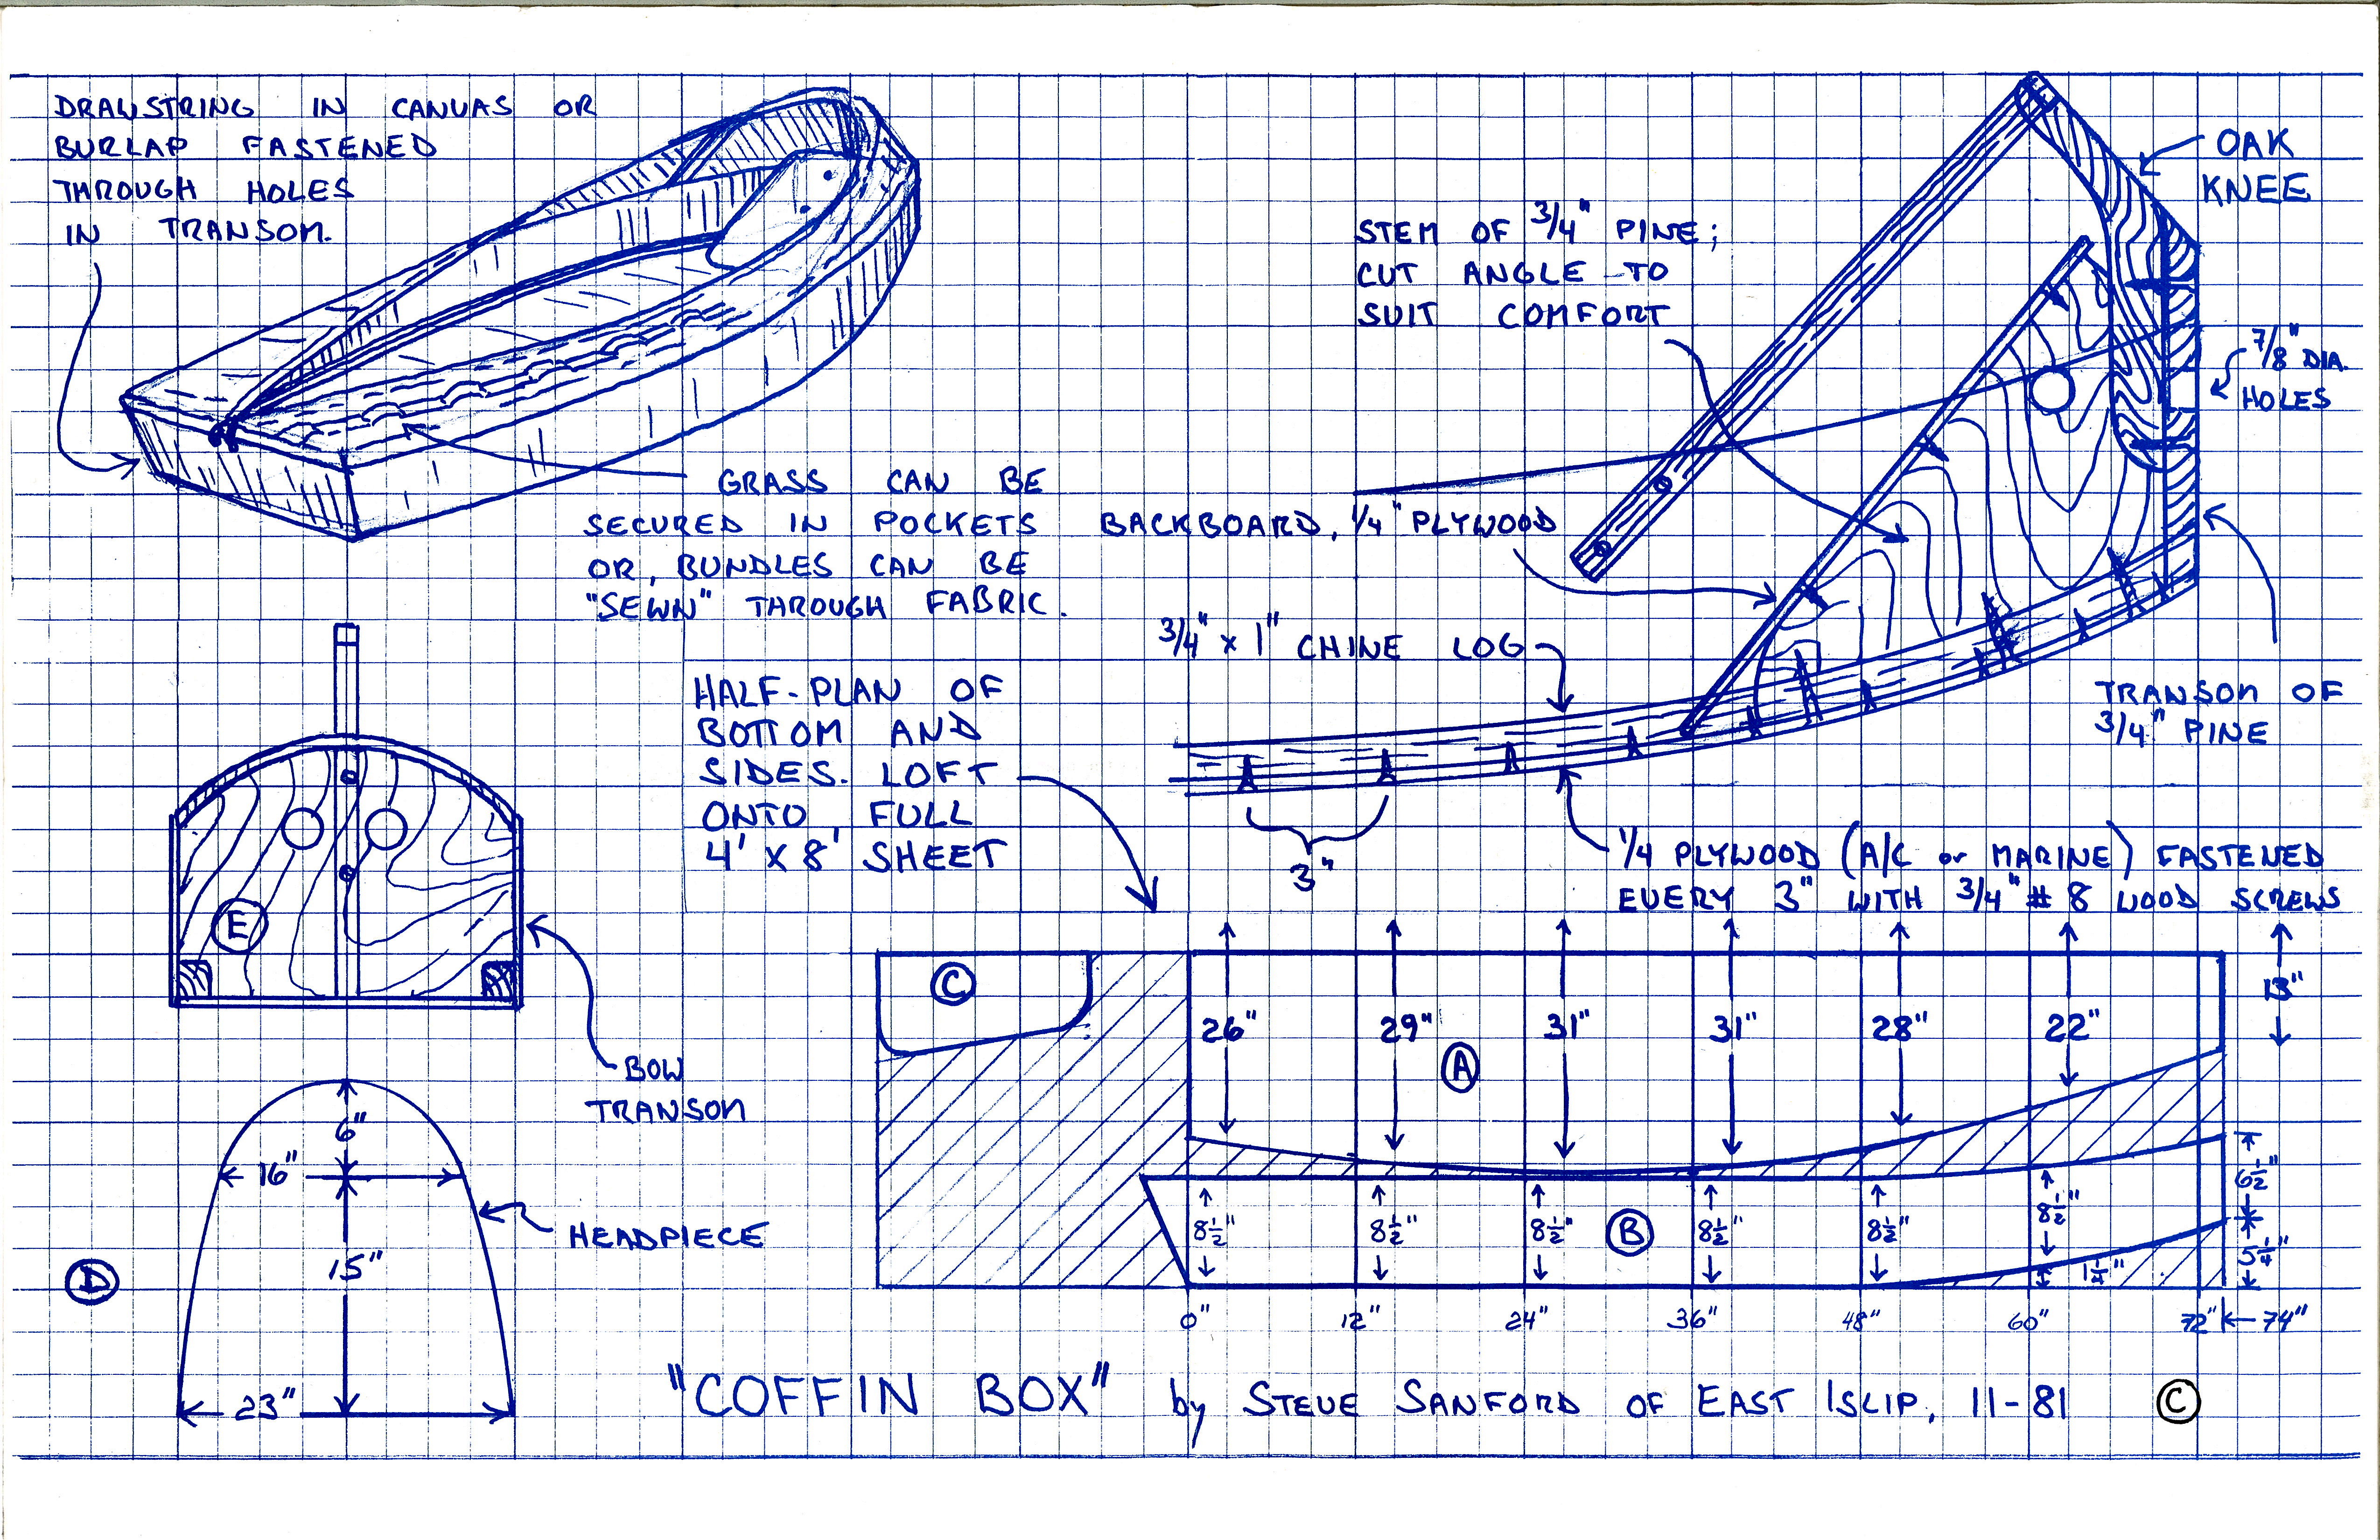 DRAWSTRING IN CANVAS OR
BURLAP FASTENED
THROUGH HOLES
IN TRANSOM.
GRASS CAN BE
SECURED IN POCKETS
OR, BUNDLES CAN BE
"SEWN" THROUGH FABRIC.
OAK
KNEE
STEM OF 3/4" PINE;
CUT ANGLE TO
SUIT COMFORT
7/8" DIA.
HOLES
BACKBOARD, 1/4" PLYWOOD
3/4" x 1" CHINE LOG
TRANSOM OF
3/4" PINE
3"
1/4 PLYWOOD (A/C or MARINE) FASTENED
EVERY 3" WITH 3/4" # 8 WOOD SCREWS
HALF-PLAN OF
BOTTOM AND
SIDES. LOFT
ONTO FULL
4' X 8' SHEET
E
BOW
TRANSOM
6"
16"
15"
HEADPIECE
D
23"
C
26" 29" 31" 31" 28" 22" 13"
A
8 1/2" 8 1/2" 8 1/2" B 8 1/2" 8 1/2" 8 1/2" 6 1/2"
1 1/4" 5 1/4"
0" 12" 24" 36" 48" 60" 72" 74"
"COFFIN BOX" by STEVE SANFORD OF EAST ISLIP, 11-81 ©